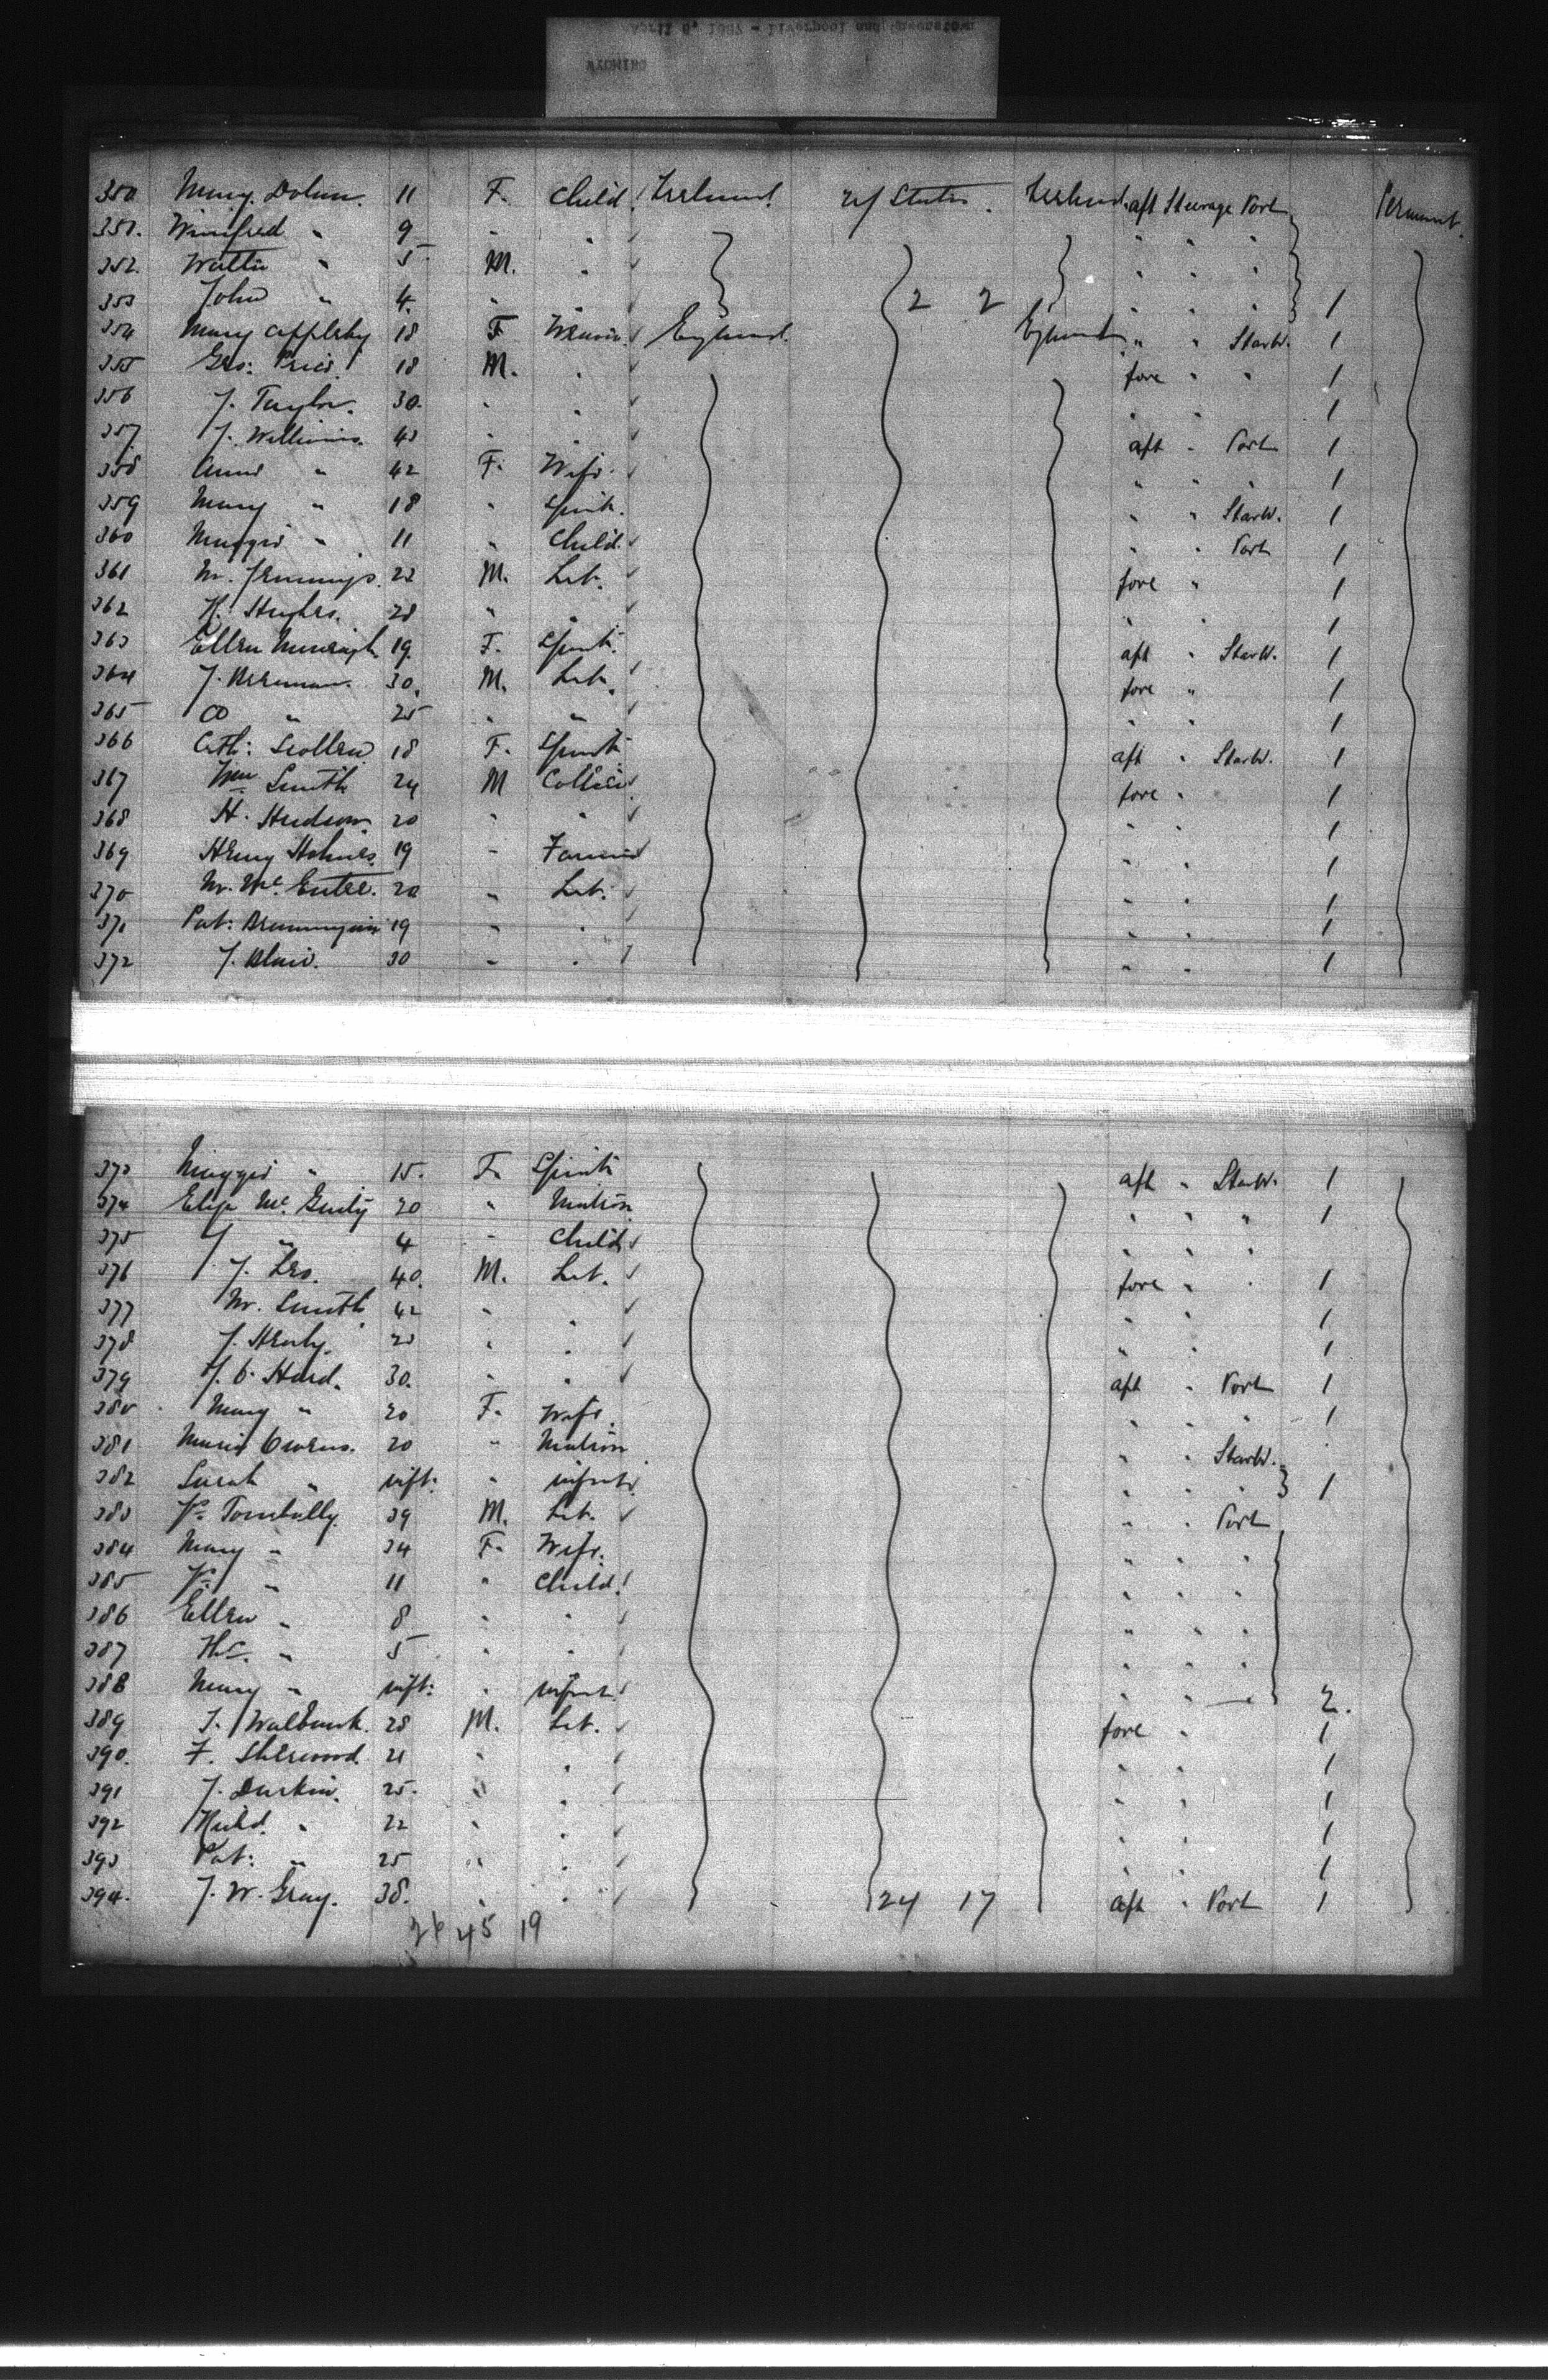 April 6, 1887 - Liverpool and Queenstown
WYOMING
350 Mary Dolan. 11 F. Child. Ireland. U/States. Ireland. aft Steerage Port Permant.
351. Winifred " 9 " " " " "
352. " 5 M. " " " "
353 John " 4 " " 2 2 " " " 1
354 Mary Appleby 18 F England. England " " Starb. 1
355 Geo: Price 18 M. " fore " " 1
356 J. Taylor. 30 " " " " 1
357 J. Williams. 43 " " aft " Port 1
358 Annie " 42 F. Wife. " " " 1
359 Mary " 18 " Spinst. " " Starb. 1
360 Maggie " 11 " Child " " Port 1
361 W. Jennings. 22 M. Lab. fore " 1
362 H. Hughes. 28 " " " " 1
363 Ellen 19 F. Spinst. aft " Starb. 1
364 J. Brennan. 30. M. Lab. fore " 1
365 " 25 " " " " 1
366 Cath: Scollen 18 F. Spinst. aft " Starb. 1
367 Wm Smith 24 M Collier fore " 1
368 H. Hudson. 20 " " " " 1
369 Henry Holmes 19 " Farmer " " 1
370 W. Mc. Entee. 20 " Lab. " " 1
371 Pat: 19 " " " " 1
372 J. Blair. 30 " " " " 1
373 Maggie " 15. F. Spinst. aft " Starb. 1
374 Eliza Mc. Ginty 20 " Matron " " " 1
375 J " 4 " Child " " "
376 J. Leo. 40. M. Lab. fore " " 1
377 W. Smith 42 " " " " 1
378 J. Henly. 23 " " " " 1
379 J. C. Hurd. 30. " " aft " Port 1
380 Mary " 20 F. Wife. " " " 1
381 Maria Owens. 20 " Matron " " Starb.
382 Sarah " inft: " infant " " " 1
383 39 M. Lab. " " Port
384 Mary " 34 F. Wife. " " "
385 " 11 " Child. " " "
386 Ellen " 8 " " " " "
387 " 5 " " " " "
388 Mary " inft: " infant " " 2.
389 J. Walbank. 28 M. Lab. fore " 1
390. F. Sherwood 21 " " " " 1
391 J. Durkin. 25. " " " " 1
392 " 22 " " " " 1
393 Pat: " 25 " " " " 1
394. J. W. Gray. 38. " " 24 17 aft " Port 1
45 19